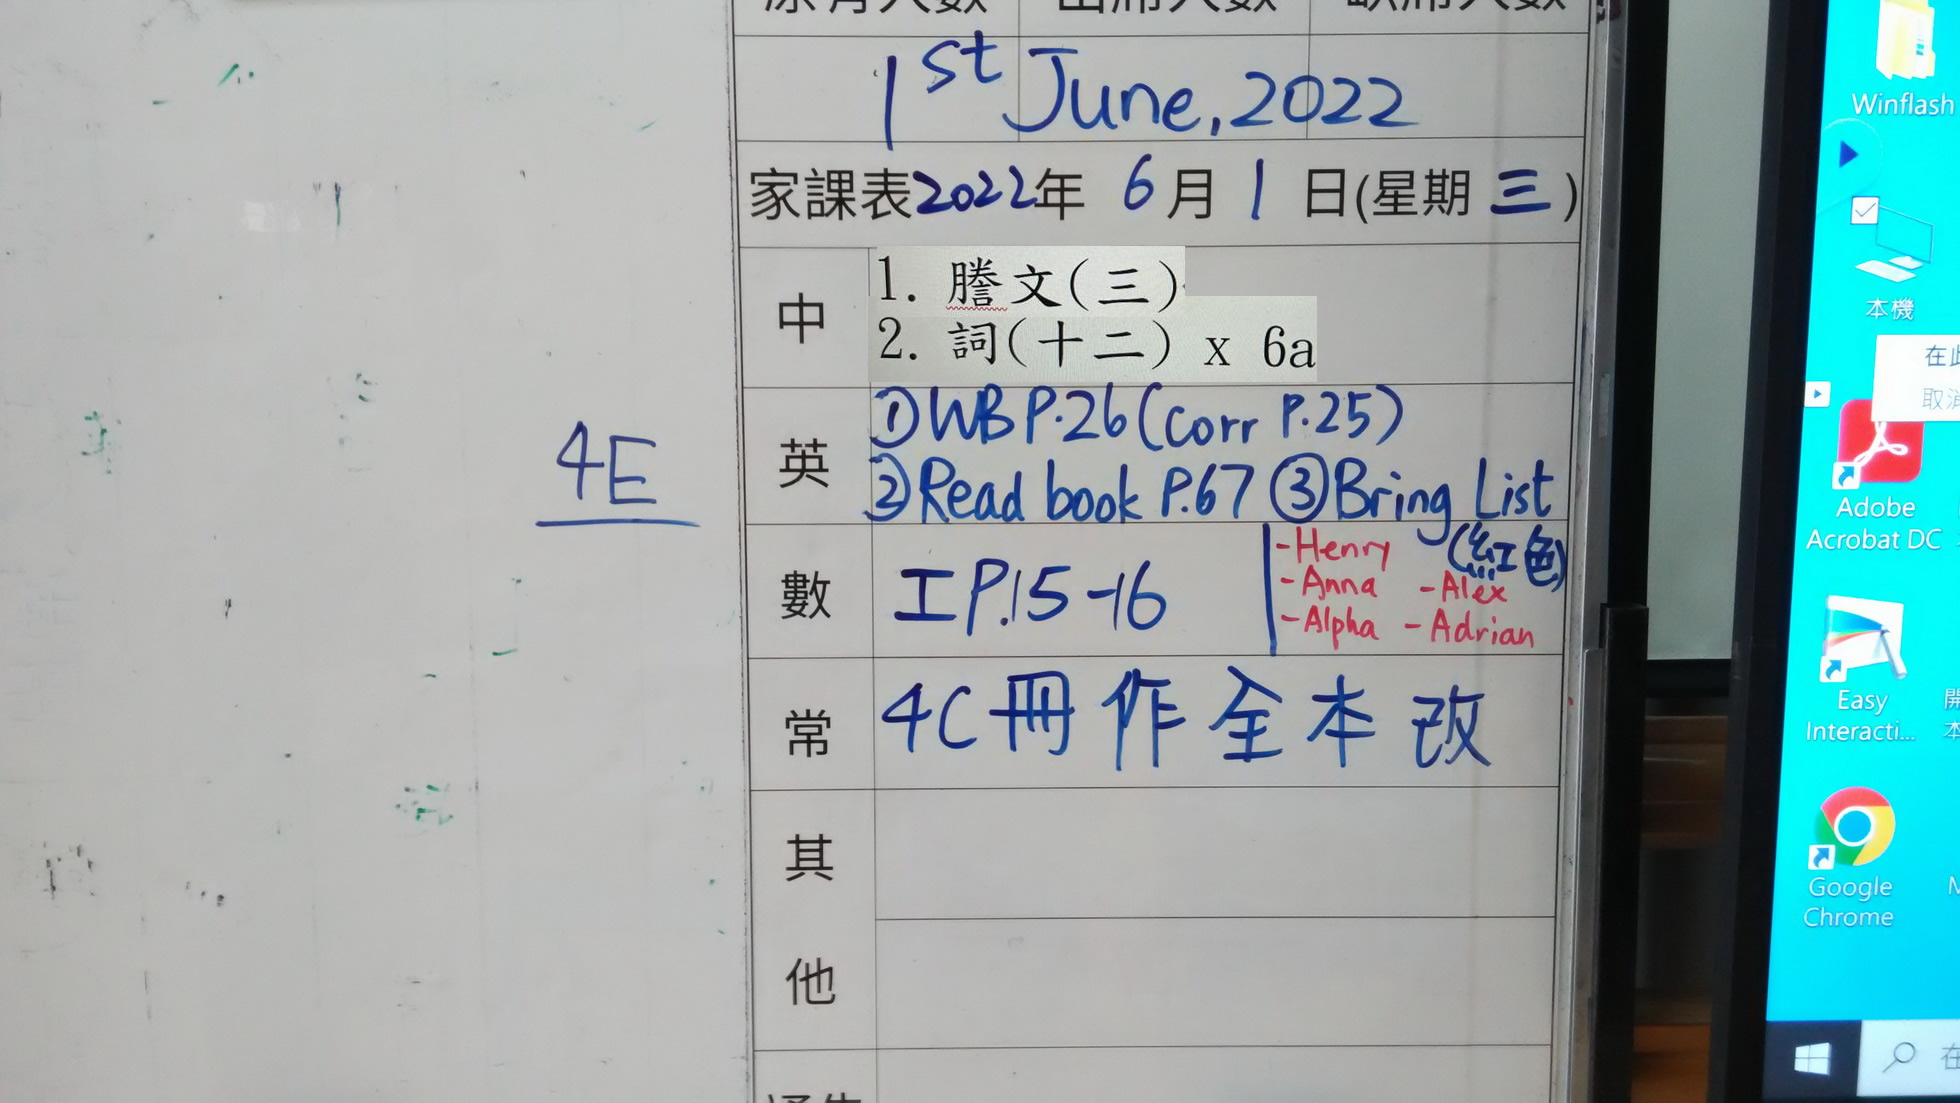 原有人數 出席人數 缺席人數
1st June, 2022
家課表2022年 6月1日(星期三)
中
1. 謄文(三)
2. 詞(十二) x 6a
英
①WB P.26(Corr P.25)
②Read book P.67 ③Bring List
(紅色)
數
工P.15-16
-Henry
-Anna -Alex
-Alpha -Adrian
常
4C冊 作全本改
其
他
4E
Winflash
本機
取消
Adobe
Acrobat DC
Easy
Interacti...
Google
Chrome